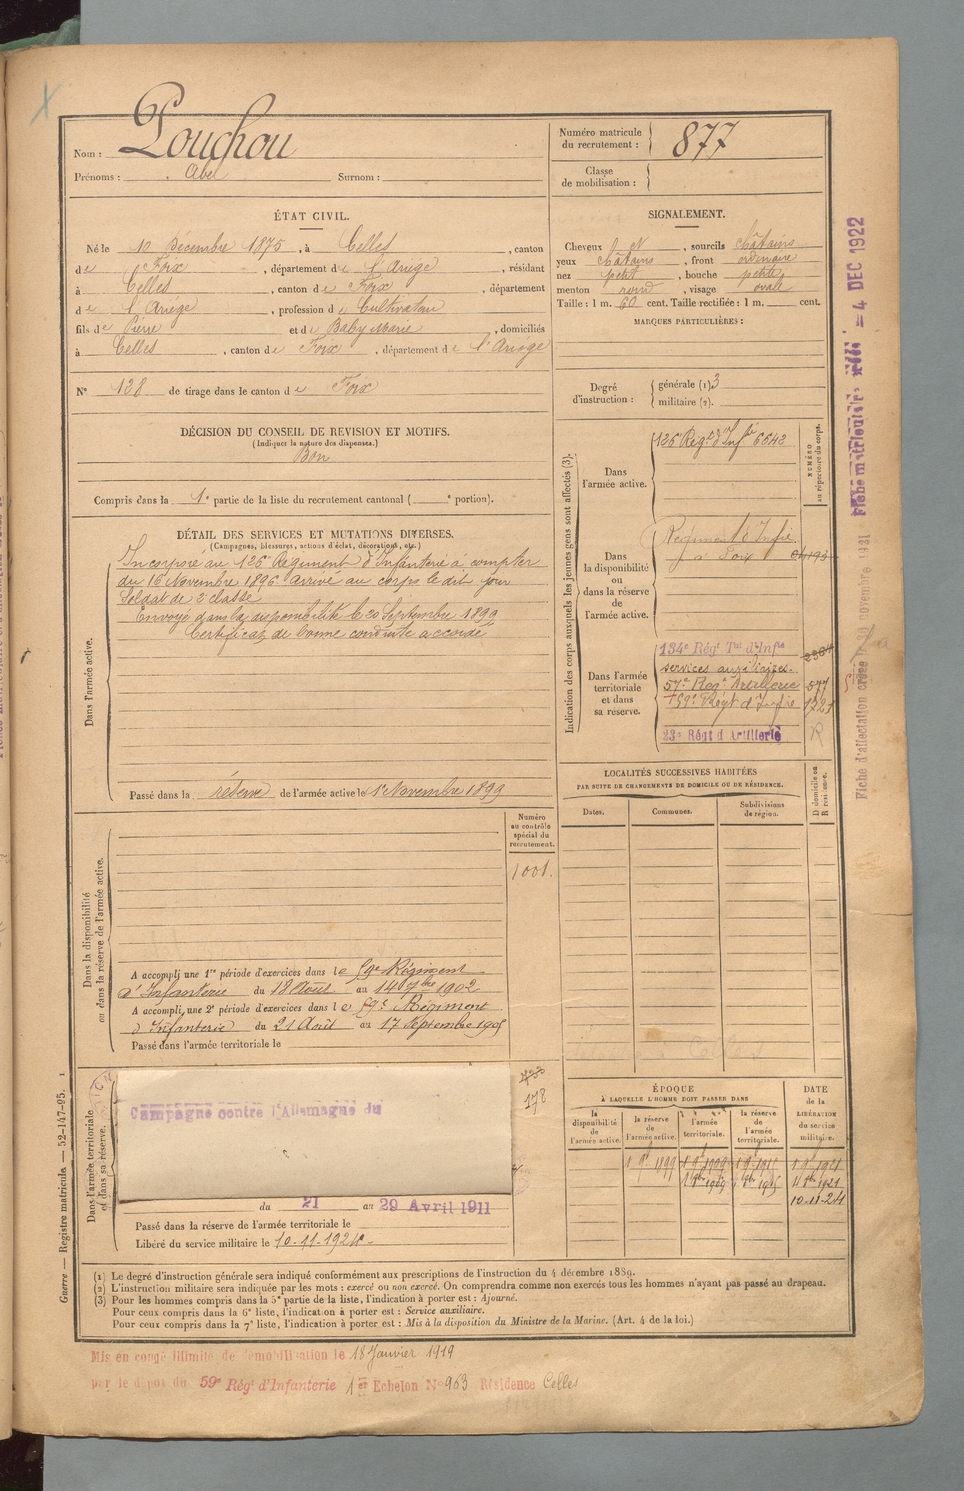 Nom : Pouchou
Prénoms : Abel Surnom :
Numéro matricule du recrutement : 877
Classe de mobilisation :
ÉTAT CIVIL.
Né le 10 Décembre 1875, à Celles, canton
de Foix, département de l'Ariège, résidant
à Celles, canton de Foix, département
de l'Ariège, profession de Cultivateur
fils de Pierre et de Baby Marie, domiciliés
à Celles, canton de Foix, département de l'Ariège
N° 128 de tirage dans le canton de Foix
SIGNALEMENT.
Cheveux et, sourcils châtains
yeux châtains, front ordinaire
nez petit, bouche petite
menton rond, visage ovale
Taille : 1 m. 60 cent. Taille rectifiée : 1 m. cent.
MARQUES PARTICULIÈRES :
Degré d'instruction : générale (1). 3
militaire (2).
DÉCISION DU CONSEIL DE REVISION ET MOTIFS.
(Indiquer la nature des dispenses.)
Bon
Compris dans la 1e partie de la liste du recrutement cantonal ( e portion).
DÉTAIL DES SERVICES ET MUTATIONS DIVERSES.
(Campagnes, blessures, actions d'éclat, décorations, etc.)
Dans l'armée active.
Incorporé au 126e Régiment d'Infanterie à compter
du 16 Novembre 1896 arrivé au corps le dit jour
Soldat de 2e classe
Envoyé dans la disponibilité le 20 Septembre 1899
Certificat de bonne conduite accordé
Passé dans la réserve de l'armée active le 1er Novembre 1899
Indication des corps auxquels les jeunes gens sont affectés (3).
NUMÉRO au répertoire du corps.
Dans l'armée active.
126e Régt d'Infie 6642
Dans la disponibilité ou dans la réserve de l'armée active.
Régiment d'Infie
à Foix
Dans l'armée territoriale et dans sa réserve.
134e Régt Tal d'Infie
services auxiliaires.
57e Regt Artillerie 577
+ 59e Régt d'Infie 1721
23e Régt d'Artillerie R
LOCALITÉS SUCCESSIVES HABITÉES
PAR SUITE DE CHANGEMENTS DE DOMICILE OU DE RÉSIDENCE.
Dates. Communes. Subdivisions de région. D domicile ou R résidence.
Dans la disponibilité ou dans la réserve de l'armée active.
Numéro au contrôle spécial du recrutement.
1001.
A accompli une 1re période d'exercices dans le 59e Régiment
d'Infanterie du 18 Août au 14 7bre 1902
A accompli une 2e période d'exercices dans le 59e Régiment
d'Infanterie du 21 Août au 17 Septembre 1905
Passé dans l'armée territoriale le
Dans l'armée territoriale et dans sa réserve.
Campagne contre l'Allemagne du
178
du 21 au 29 Avril 1911
Passé dans la réserve de l'armée territoriale le
Libéré du service militaire le 10-11-1924-
ÉPOQUE
À LAQUELLE L'HOMME DOIT PASSER DANS
la disponibilité de l'armée active. la réserve de l'armée active. l'armée territoriale. la réserve de l'armée territoriale.
DATE de la LIBÉRATION du service militaire.
1 9bre 1899 1 9bre 1909 1 9bre 1915 1 9bre 1921
10-11-24
(1) Le degré d'instruction générale sera indiqué conformément aux prescriptions de l'instruction du 4 décembre 1889.
(2) L'instruction militaire sera indiquée par les mots : exercé ou non exercé. On comprendra comme non exercés tous les hommes n'ayant pas passé au drapeau.
(3) Pour les hommes compris dans la 5e partie de la liste, l'indication à porter est : Ajourné.
Pour ceux compris dans la 6e liste, l'indication à porter est : Service auxiliaire.
Pour ceux compris dans la 7e liste, l'indication à porter est : Mis à la disposition du Ministre de la Marine. (Art. 4 de la loi.)
Mis en congé illimité de démobilisation le 18 Janvier 1919
par le dépôt du 59e Régt d'Infanterie 1er Echelon N° 963 Résidence Celles
Guerre — Registre matricule. — 52-147-95.
Fiche matriculaire = 4 DEC 1922
Fiche d'affectation créée le 30 novembre 1921